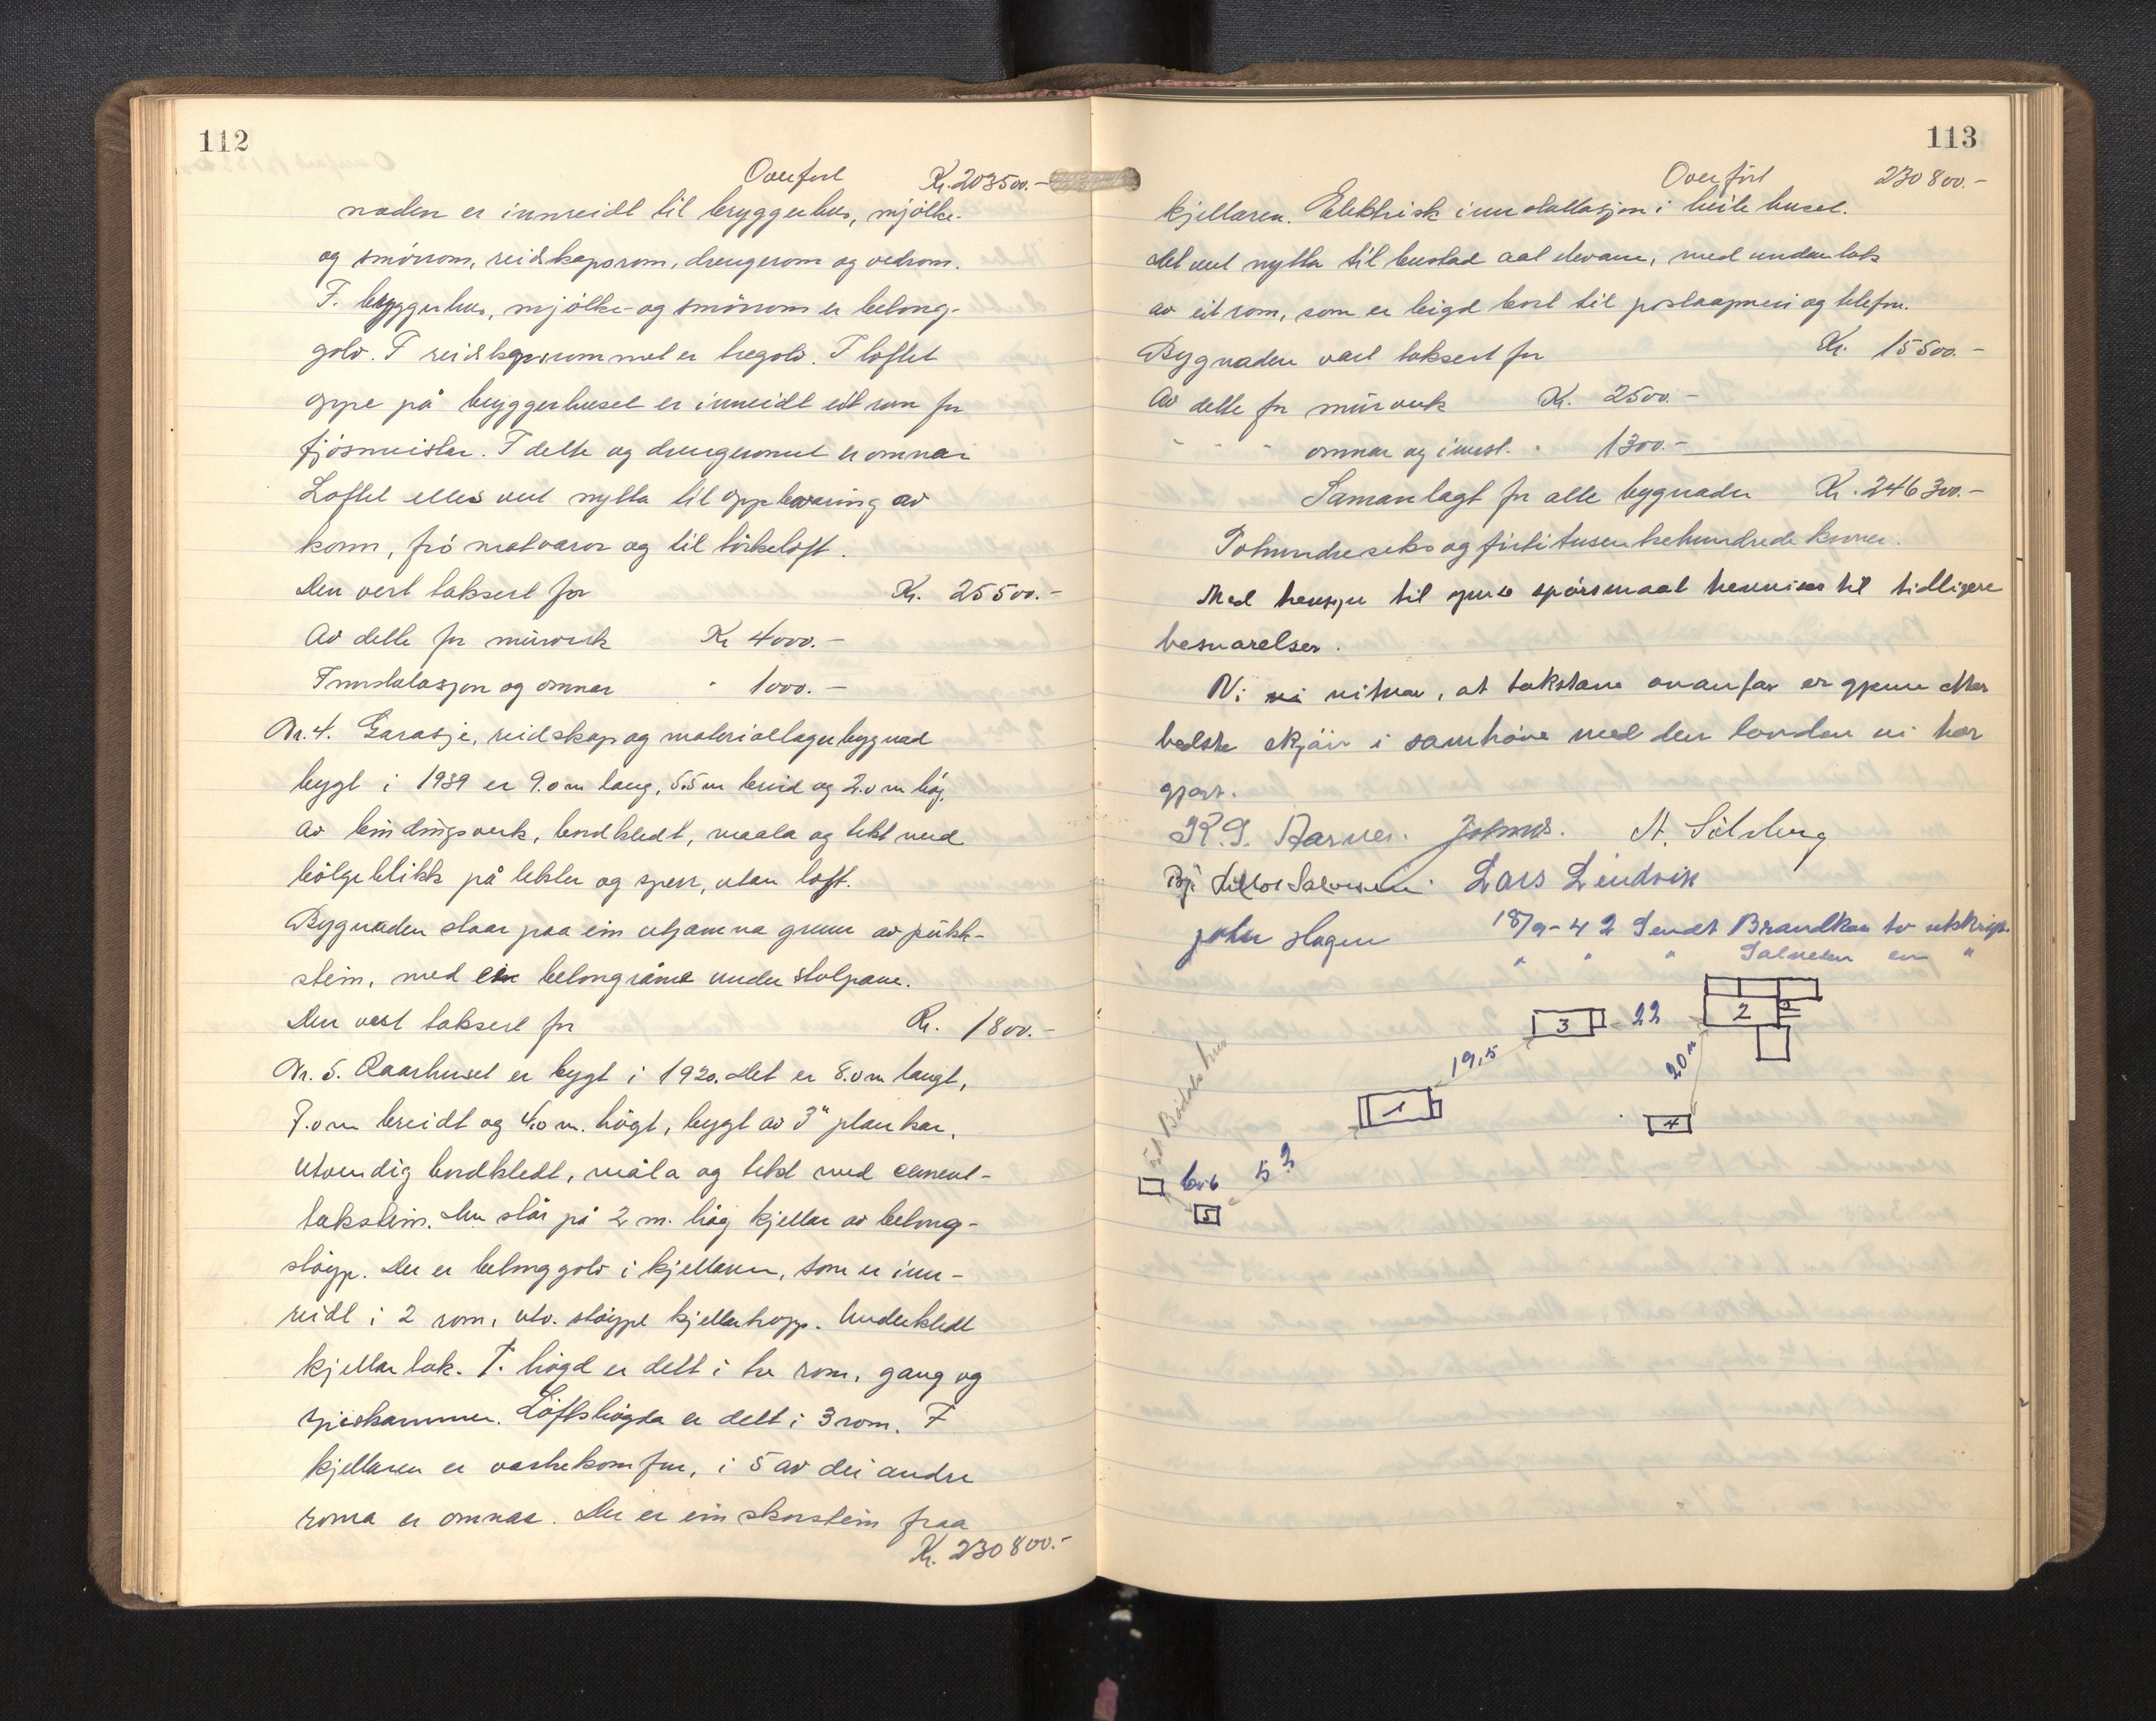 112
Overført Kr. 203500.-
naden er innreidt til bryggerhus, mjölke-
og smörrom, reidskapsrom, drengerom og vedrom.
I bryggerhus, mjölke- og smörrom er betong-
golv. I reidskapsrommet er tregolv. I loftet
oppe på bryggerhuset er innreidt eit rom for
fjösmeister. I dette og drengeromet er omnar
Loftet elles vert nytta til oppbevaring av
korn, frö matvaror og til törkeloft.
Den vert taksert for Kr. 25500.-
Av dette for mürverk Kr 4000.-
Innstalasjon og omnar " 1000.-
Nr. 4. Garasje, reidskap og materiallagerbygnad
bygt i 1939 er 9.0 m lang, 5.5 m breid og 2.0 m høg,
av bindingsverk, bordkledt, maala og tekt med
bölgeblikk på lekter og sperr, utan loft.
Bygnaden staar paa ein utjamna grunn av pükk-
stein, med ein betongråme under stolpane.
Den vert taksert for Kr. 1800.-
Nr. 5. Kaarhuset er bygt i 1920. Det er 8.0 m langt,
7.0 m breidt og 4.0 m. högt, bygt av 3" plankar,
utvendig bordkledt, måla og tekt med cement-
takstein. Den står på 2 m. høg kjellar av betong-
støyp. Der er betonggolv i kjellaren, som er inn-
reidt i 2 rom, utv. støypt kjellartropp. Underkledt
kjellartak. 1. høgd er delt i tre rom, gang og
spiskammer. Loftshøgda er delt i 3 rom. I
kjellaren er vaskekomfyr, i 5 av dei andre
roma er omnar. Der er ein skorstein fraa
Kr. 230800.-
113
Overført 230800.-
kjellaren. Elektrisk innstallasjon i heile huset.
Det vert nytta til bustad aat elevane, med undantak
av eit rom, som er leigd bort til postaapneri og telefon.
Bygnaden vart taksert for Kr. 15500.-
Av dette for mürverk Kr. 2500.-
" " " omnar og innst. " 1300.-
Samanlagt for alle bygnader Kr. 246300.-
Tohundreseksogførtitusentrehundrede kroner.
Med hensyn til spörsmaal henvises til tidligere
besvarelser.
Vi vitnar, at takstane ovanfor er gjenne etter
bedste skjön i samhöve med den lovnden vi har
gjort.
K. G. Aarnes. St. Sölsberg
Lars Lindvik
John Hagen 18/9-42 Sendt Brandkas to utskrift.
" " " Salvesen en "
3 22 2
19,5 20 m
1 4
5 2
5